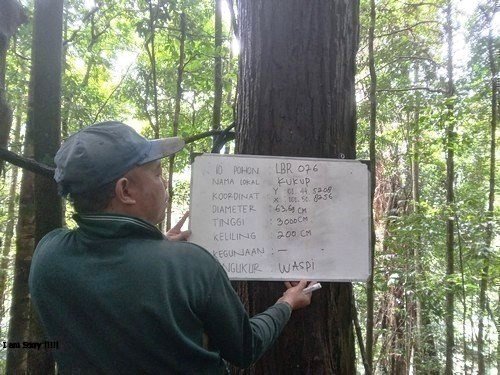 ID POHON : LBR 076
NAMA LOKAL : KUKUP
KOORDINAT : Y 01. 44. 5208
X 101. 50. 8256
DIAMETER : 63,69 CM
TINGGI : 3000 CM
KELILING : 200 CM
KEGUNAAN : —
PENGUKUR : WASPI